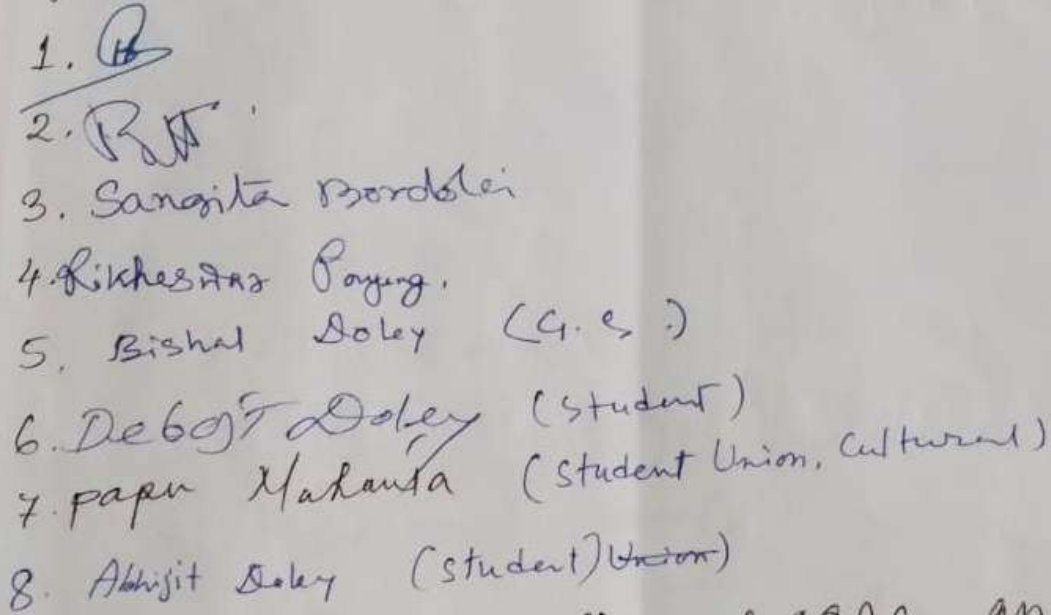 1.
2.
3. Sangita Bordoloi
4. Rikheswar Payeng.
5. Bishal Doley (G.S.)
6. Debojit Doley (Student)
7. papu Mahanta (Student Union, Cultural)
8. Abhijit Doley (Student) Union)